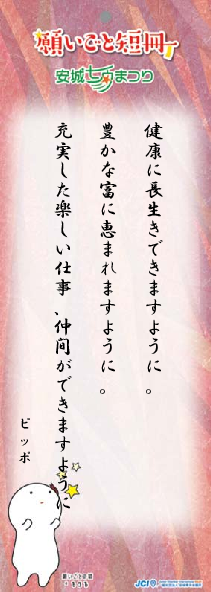 願いごと短冊
安城七夕まつり
健康に長生きできますように。
豊かな富に恵まれますように。
充実した楽しい仕事、仲間ができますように
ピッポ
願いごと
きーぼー
JCI